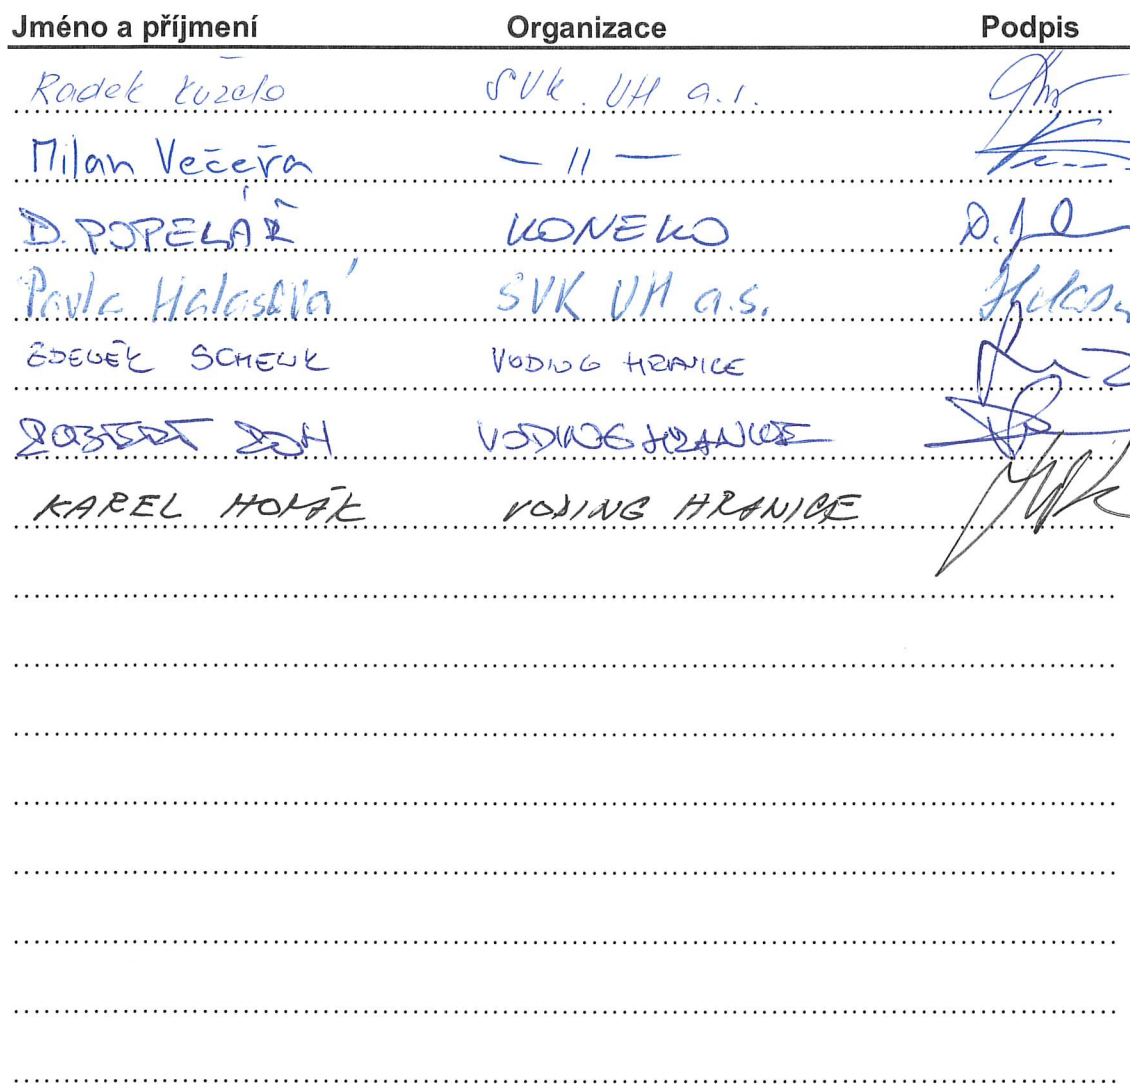 Jméno a příjmení Organizace Podpis
Radek Kuzelo SVK UH a.s.
Milan Večeřa — 11 —
D. POPELÁŘ KONEKO D.
Pavla SVK UH a.s.
ZDENĚK SCHENK VODING HRANICE
ROBERT VODING HRANICE
KAREL VODING HRANICE